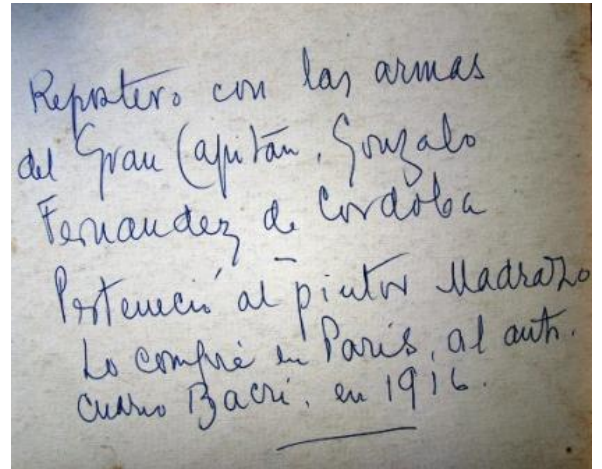 Repostero con las armas
del Gran Capitán, Gonzalo
Fernandez de Cordoba
Perteneció al pintor Madrazo
Lo compré en Paris, al anti-
cuario Bacri. en 1916.